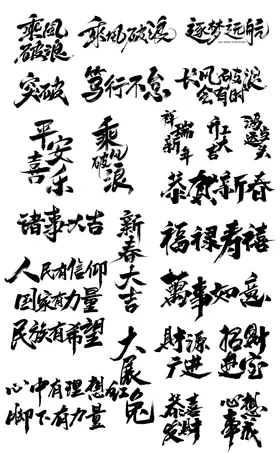 乘风
破浪
乘风破浪
逐梦远航
突破
笃行不怠
长风破浪
会有时
平安
喜乐
乘风
破浪
祥瑞
新年
开工
大吉
鸿运
当头
恭贺新春
诸事大吉
新春大吉
福禄寿禧
人民有信仰
国家有力量
民族有希望
萬事如意
大展红兔
财源
广进
招财
进宝
心中有理想
脚下有力量
恭喜
发财
心想
事成